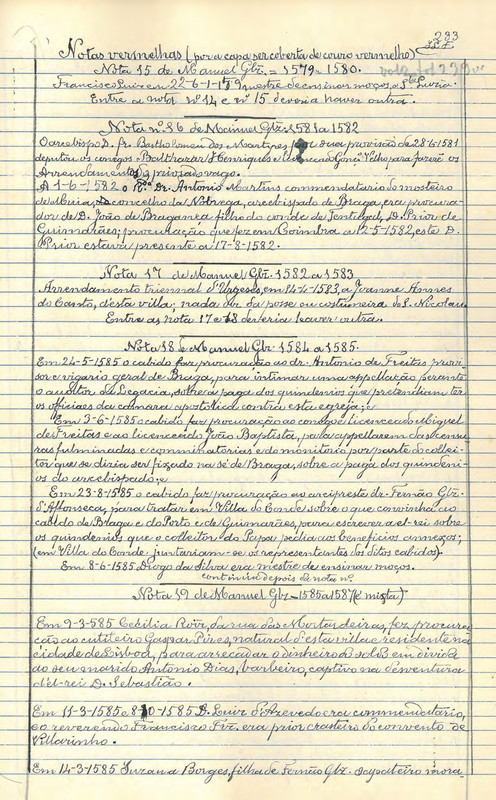 293
Notas vermelhas (por a capa ser coberta de couro vermelho)
Nota 15 de Manuel Glz. = 1579 - 1580.
Francisco Luiz em 22-6-1579 mestre de ensinar moços a
Entre a nota nº 14 e nº 15 deveria haver outra.
Nota nº 16 de Manuel Glz. 1581 a 1582
O arcebispo D. fr. Bartholomeu dos Martyres, por sua provisão de 28-6-1581
deputou os conegos Balthazar d'Henriques e Gonçalo Velho para fazerem os
Arrendamentos do priorado vago.
A 1-6-1582 o Dr. Antonio Martins commendatario do mosteiro
de Muia, concelho da Nobrega, arcebispado de Braga, era procura-
dor de D. João de Bragança filho do conde de Tentugal, D. Prior de
Guimarães; procuração que fez em Coimbra a 12-5-1582, este D.
Prior estava presente a 17-8-1582.
Nota 17 de Manuel Glz. 1582 a 1583
Arrendamento triennal d'Urgeses, em 14-4-1583, a Joanne Annes
do Canto, d'esta villa; nada diz da posse ou costumeira de S. Nicolau.
Entre as nota 17 e 18 deveria haver outra.
Nota 18 de Manuel Glz. 1584 a 1585.
Em 24-5-1585 o cabido faz procuração ao dr. Antonio de Freitas provi-
sor e vigario geral de Braga, para intimar uma appellação perante
o auditor da Legacia, sobre a paga dos quindenios que pretendiam ter
os officiaes da camara apostolica contra esta egreja; e
Em 3-6-1585 o cabido faz procuração ao conego licenceado Miguel
de Freitas e ao licenceado João Baptista, para appellarem das censu-
ras fulminadas e comminatorias e do monitorio por parte do collei-
tor que se dizia ser fixado na sé de Braga, sobre a paga dos quindeni-
os do arcebispado, e
Em 23-8-1585 o cabido faz procuração ao arcipreste dr. Fernão Glz.
d'Affonseca, para tratar em Villa do Conde sobre o que convinha ao
cabido de Braga e do Porto e de Guimarães, para escrever a el-rei sobre
os quindenios que o colleitor do Papa pedia aos beneficios annexos;
(em Villa do Conde juntariam-se os representantes dos ditos cabidos).
Em 8-6-1585 Diogo da Silva era mestre de ensinar moços.
continua depois da nota nº
Nota 19 de Manuel Glz - 1585 a 1587 (é mixta)
Em 9-3-585 Cecilia Roiz, da rua das Mostardeiras, fez procura-
ção ao cutileiro Gaspar Pires, natural d'esta villa e residente na
cidade de Lisboa, para arrecadar o dinheiro do soldo em divida
ao seu marido Antonio Dias, barbeiro, captivo na desventura
d'el-rei D. Sebastião.
Em 11-3-1585 e 8-10-1585 D. Luiz d'Azevedo era commendatario,
e o reverendo Francisco Frz. era prior crasteiro do convento de
Villarinho.
Em 14-3-1585 Suzana Borges, filha de Fernão Glz. sapateiro mora-